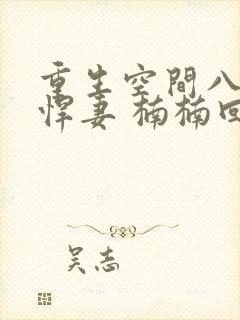 重生空間八
悍妻 楠楠回
吴志